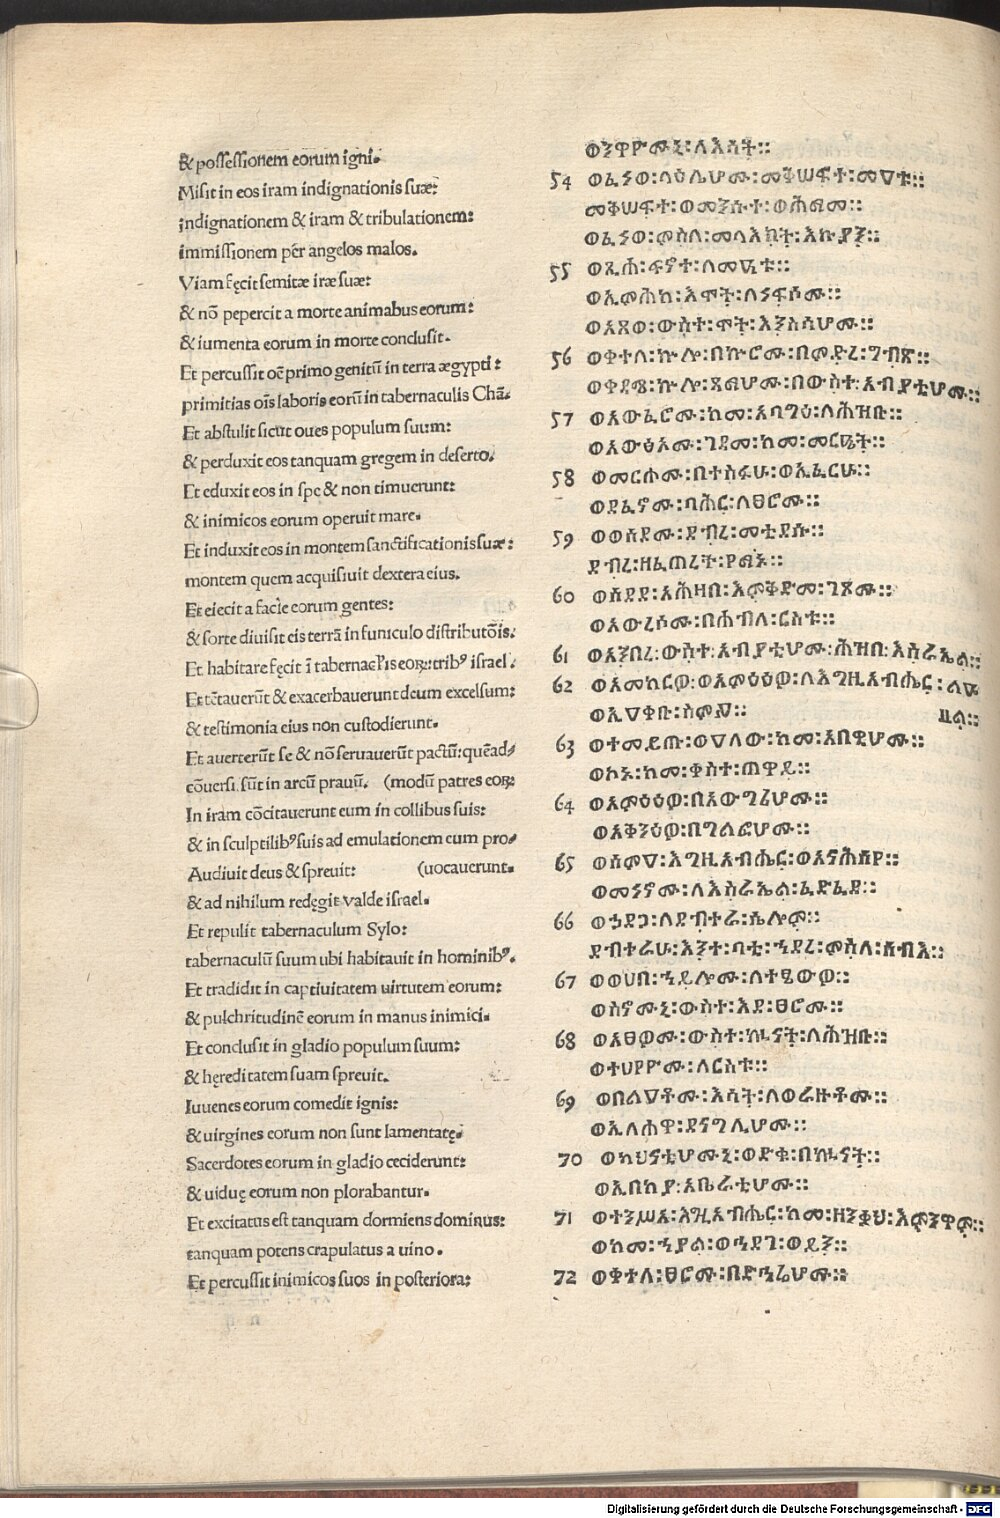 & possessionem eorum igni.
Misit in eos iram indignationis suæ:
indignationem & iram & tribulationem:
immissionem per angelos malos.
Viam fęcit semitæ iræ suæ:
& nō pepercit a morte animabus eorum:
& iumenta eorum in morte conclusit.
Et percussit oē primo genitū in terra ægypti:
primitias oīs laboris eorū in tabernaculis Chā.
Et abstulit sicut oues populum suum:
& perduxit eos tanquam gregem in deserto.
Et eduxit eos in spe & non timuerunt:
& inimicos eorum operuit mare.
Et induxit eos in montem sanctificationis suæ:
montem quem acquisiuit dextera eius.
Et eiecit a facie eorum gentes:
& sorte diuisit eis terrā in funiculo distributōis.
Et habitare fęcit ī tabernacl'is eoꝝ: tribꝰ israel.
Et tētauerūt & exacerbauerunt deum excelsum:
& testimonia eius non custodierunt.
Et auerterūt se & nō seruauerūt pactū: quēad-
cōuersi sūt in arcū prauū. (modū patres eoꝝ:
In iram cōcitauerunt eum in collibus suis:
& in sculptilibꝰ suis ad emulationem eum pro-
Audiuit deus & spreuit: (uocauerunt.
& ad nihilum redęgit valde israel.
Et repulit tabernaculum Sylo:
tabernaculū suum ubi habitauit in hominibꝰ.
Et tradidit in captiuitatem uirtutem eorum:
& pulchritudinē eorum in manus inimici.
Et conclusit in gladio populum suum:
& hęreditatem suam spreuit.
Iuuenes eorum comedit ignis:
& uirgines eorum non sunt lamentatę.
Sacerdotes eorum in gladio ceciderunt:
& uiduę eorum non plorabantur.
Et excitatus est tanquam dormiens dominus:
tanquam potens crapulatus a uino.
Et percussit inimicos suos in posteriora:
ወንዋዮሙኒ፡ለእሳት።
54 ወፈነወ፡ላዕሌሆሙ፡መቅሠፍተ፡መዓቱ።
መቅሠፍተ፡ወመንሱተ፡ወሕመመ።
ወፈነወ፡ምስለ፡መላእክት፡እኩያን።
55 ወጼሐ፡ፍኖተ፡ለመዓቱ።
ወኢምሕከ፡እሞት፡ለነፍሶሙ።
ወአጸወ፡ውስተ፡ሞት፡እንስሳሆሙ።
56 ወቀተለ፡ኵሎ፡በኵሮሙ፡በምድረ፡ግብጽ።
ወቀደሜ፡ኵሎ፡ጻማሆሙ፡በውስተ፡አብያቲሆሙ።
57 ወአውፈሮሙ፡ከመ፡አባግዕ፡ለሕዝቡ።
ወአውፅአሙ፡ገዳመ፡ከመ፡መርዔት።
58 ወመርሖሙ፡በተስፋሁ፡ወኢፈርሁ።
ወደፈኖሙ፡ባሕር፡ለፀሮሙ።
59 ወወሰዶሙ፡ደብረ፡መቲደሱ።
ደብረ፡ዘፈጠረት፡የማኑ።
60 ወሰደደ፡አሕዛበ፡እምቅድመ፡ገጾሙ።
ወአውረሶሙ፡በሐብለ፡ርስቱ።
61 ወአንበረ፡ውስተ፡አብያቲሆሙ፡ሕዝበ፡እስራኤል።
62 ወአመከርዎ፡ወአምዕዕዎ፡ለእግዚአብሔር፡ልዑ
ወኢዓቀቡ፡ስምዖ። ዚል።
63 ወተመይጡ፡ወዓለው፡ከመ፡አበዊሆሙ።
ወኮኑ፡ከመ፡ቀስተ፡ጠዋይ።
64 ወአምዕዕዎ፡በአውግሪሆሙ።
ወአቅንዕዎ፡በግልፎሆሙ።
65 ወሰምዓ፡እግዚአብሔር፡ወአናሕሰየ።
ወመነኖሙ፡ለእስራኤል፡ፈድፈደ።
66 ወኃደጋ፡ለደብተራ፡ሴሎም።
ደብተራሁ፡እንተ፡ባቲ፡ኀደረ፡ምስለ፡ሰብእ።
67 ወወሀበ፡ኀይሎሙ፡ለተፄውዎ።
ወስኖሙኒ፡ውስተ፡እደ፡ፀሮሙ።
68 ወአፀዎሙ፡ውስተ፡ኲናት፡ለሕዝቡ።
ወተሀየዮሙ፡ለርስቱ።
69 ወበልዓቶሙ፡እሳት፡ለወራዙቶሙ።
ወኢለሐዋ፡ደናግሊሆሙ።
70 ወካህናቲሆሙኒ፡ወድቁ፡በኲናት።
ወኢበከያ፡አቤራቲሆሙ።
71 ወተንሥአ፡እግዚአብሔር፡ከመ፡ዘንቃህ፡እምንዋም።
ወከመ፡ኀያል፡ወኀደገ፡ወይን።
72 ወቀተለ፡ፀሮሙ፡በድኅሬሆሙ።
Digitalisierung gefördert durch die Deutsche Forschungsgemeinschaft - DFG